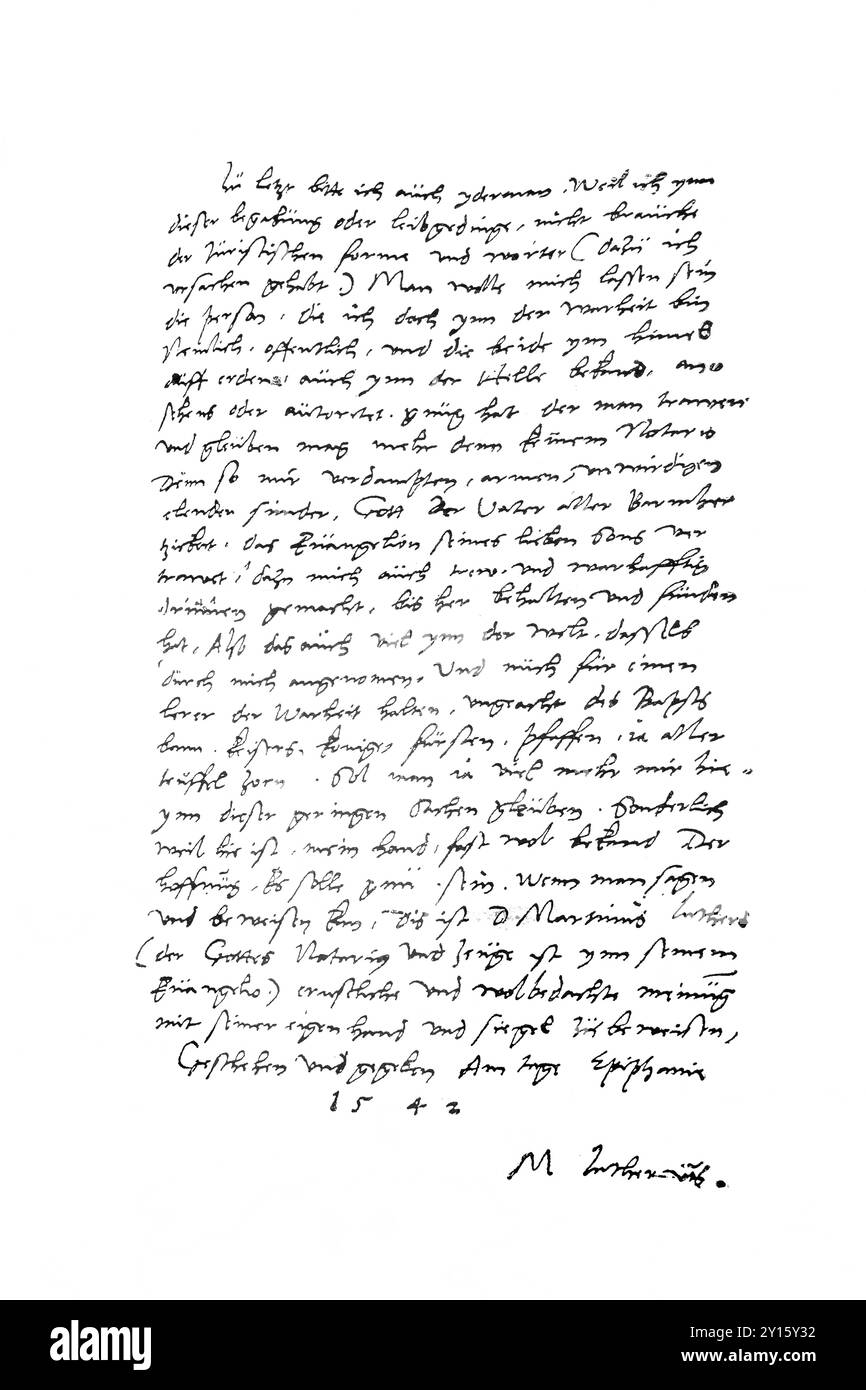 Zu letzt bitte ich auch yderman, Weil ich ynn
dieser begabung oder leibgedinge, nicht brauche
der Juristischen forme und worter (dazu ich
ursachen gehabt) Man wolle mich lassen sein
die person, die ich doch ynn der warheit bin
Nemlich, offentlich, und die beide ym himel
auff erden, auch ynn der Helle bekand, an=
sehens oder autoritet gnug hat, der man trawen
und gleuben mag mehr denn keinem Notario
Denn so mir verdampten, armen, unwirdigen
elenden sunder, Gott der Vater aller Barmher
tzickeit, das Euangelion seines lieben Sons ver
trawet, dazu mich auch trew und warhafftig
drinnen gemacht, bis her behalten und funden
hat, Also das auch viel ynn der welt, dasselb
durch mich angenomen, Und mich fur einen
lerer der Warheit halten, ungeacht des Bapsts
bann, keisers, konige, fursten, pfaffen, ia aller
teuffel zorn, Sol man ia viel mehr mir hie=
ynn dieser geringen sachen gleuben, Sonderlich
weil hie ist, mein hand, fast wol bekand Der
hoffnung, Es solle gnu sein, Wenn man sagen
und beweisen kan, dis ist D Martinus Luthers
(der Gottes Notarius und Zeuge ist ynn seinem
Euangelio) ernstliche und wolbedachte meinung
mit seiner eigen hand und siegel zu beweisen,
Geschehen und gegeben Am tage Epiphanie
1542
M Luther
alamy
Image ID: 2Y15Y32
www.alamy.com